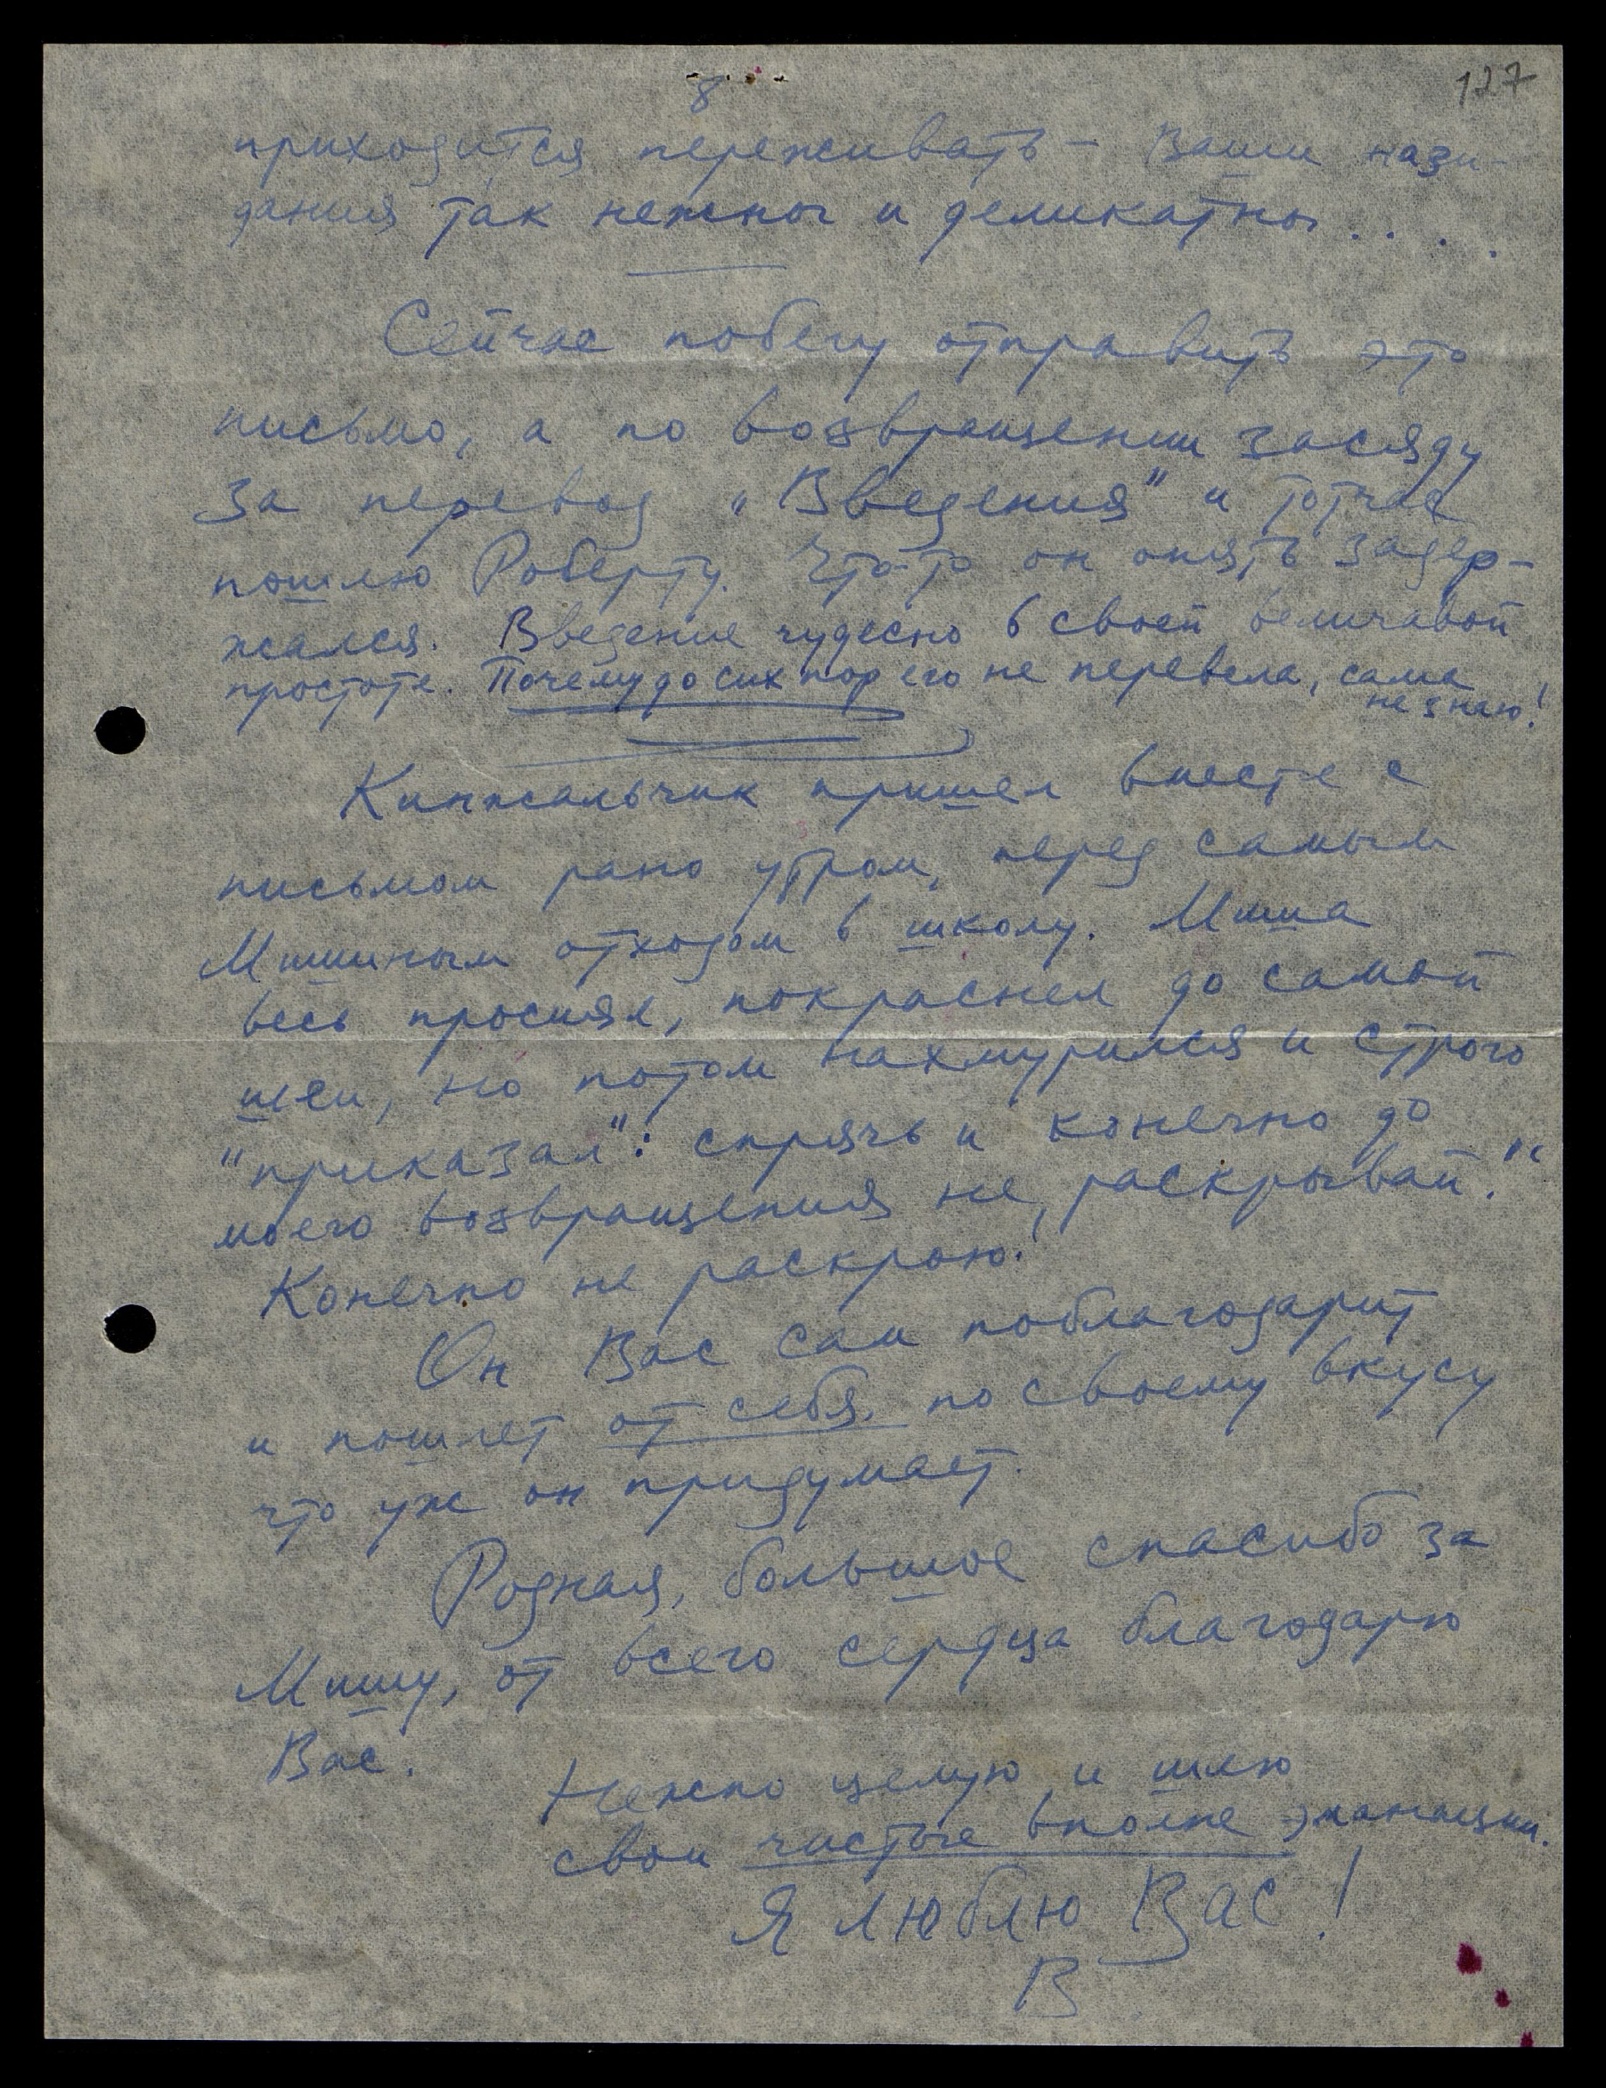 127
8
приходится переживать – Ваши нази-
дания так нежны и деликатны . . . .
Сейчас побегу отправить это
письмо, а по возвращении засяду
за перевод „Введения" и тотчас
пошлю Роберту. Что-то он опять задер-
жался. Введение чудесно в своей величавой
простоте. Почему до сих пор его не перевела, сама
не знаю!
Кинжальчик пришел вместе с
письмом рано утром, перед самым
Мишиным отходом в школу. Миша
весь просиял, покраснел до самой
шеи, но потом нахмурился и строго
"приказал": спрячь и конечно до
моего возвращения не раскрывай!"
Конечно не раскрою!
Он Вас сам поблагодарит
и пошлет от себя, по своему вкусу
что уж он придумает.
Родная, большое спасибо за
Мишу, от всего сердца благодарю
Вас.
Нежно целую и шлю
свои чистые вполне эманации.
Я люблю Вас!
В.